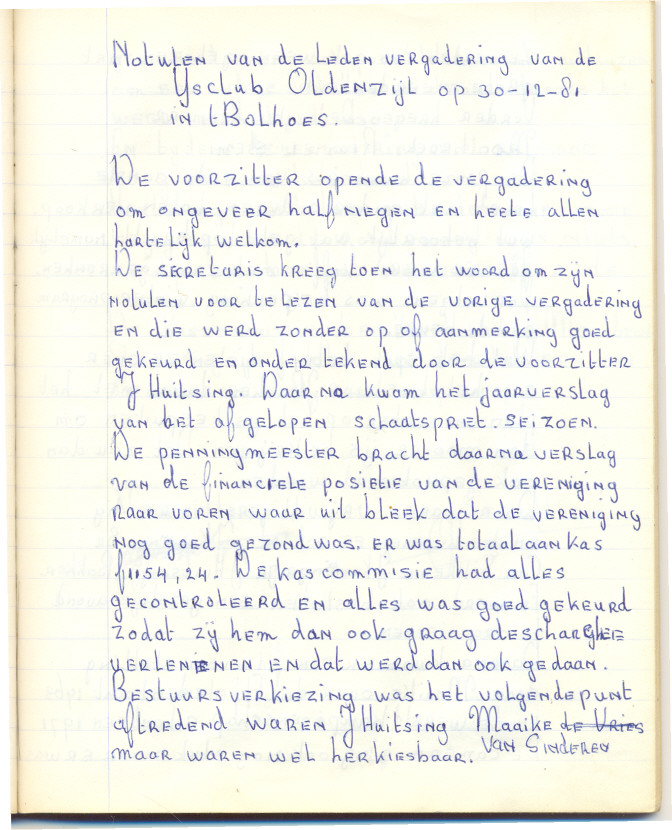 Notulen van de Leden vergadering van de
Ysclub Oldenzijl op 30-12-81
in t Bolhoes.
De voorzitter opende de vergadering
om ongeveer half negen en heete allen
hartelijk welkom.
De secretaris kreeg toen het woord om zijn
notulen voor te lezen van de vorige vergadering
en die werd zonder op of aanmerking goed
gekeurd en onder tekend door de voorzitter
J Huitsing. Daarna kwam het jaarverslag
van het af gelopen schaatspriet. seizoen.
De penningmeester bracht daarna verslag
van de financiele posietie van de vereniging
naar voren waar uit bleek dat de vereniging
nog goed gezond was. Er was totaal aan kas
f 1154,24. De kas commisie had alles
gecontroleerd en alles was goed gekeurd
zodat zij hem dan ook graag descharge
verlenenen en dat werd dan ook gedaan.
Bestuurs verkiezing was het volgende punt
aftredend waren J Huitsing Maaike de Vries
van Sinderen
maar waren wel herkiesbaar.